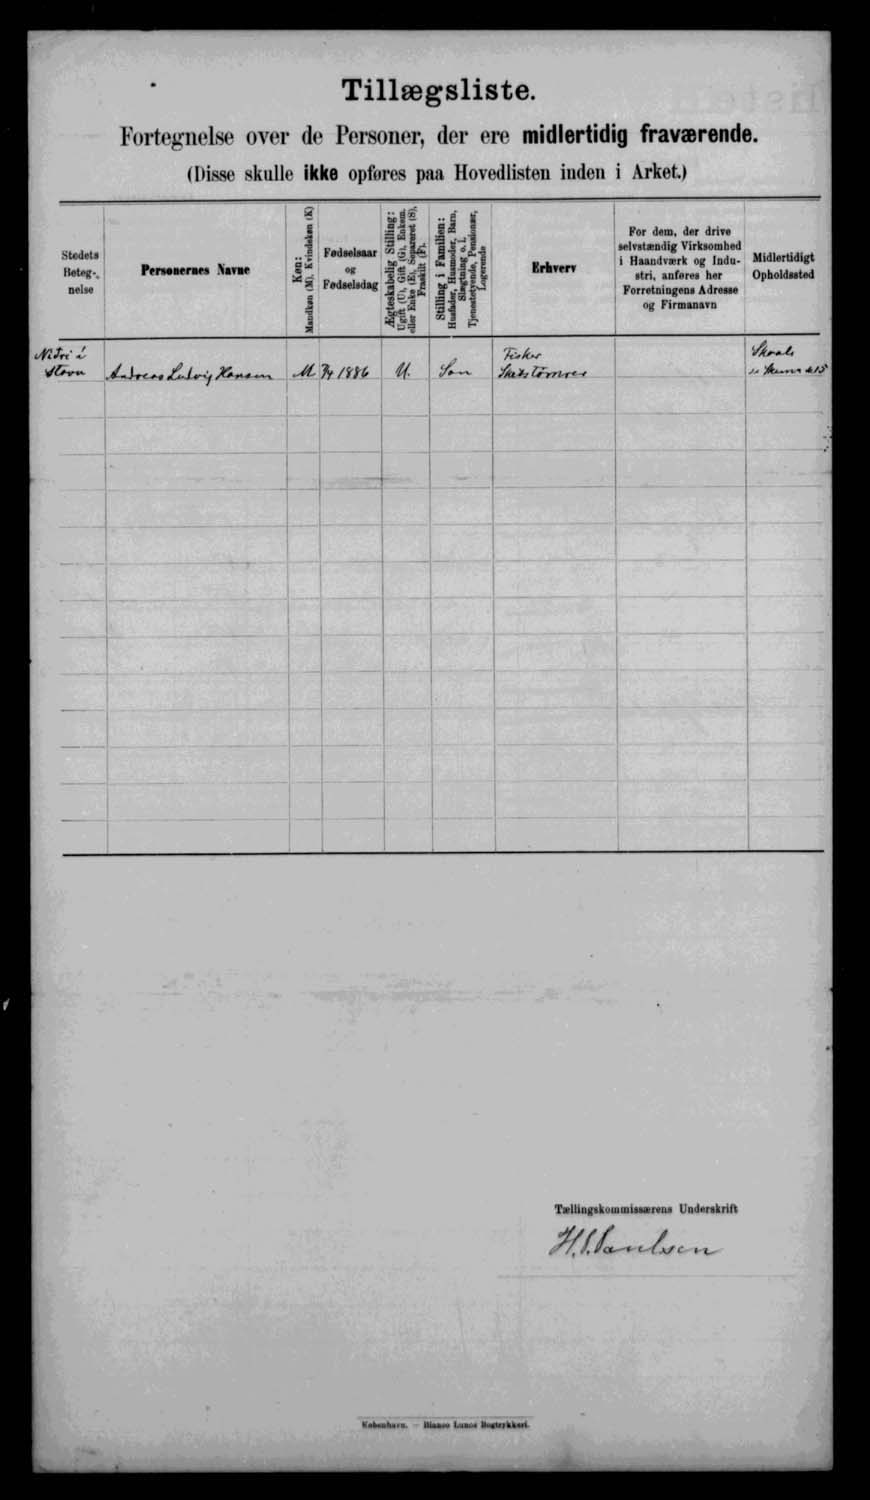 Tillægsliste.
Fortegnelse over de Personer, der ere midlertidig fraværende.
(Disse skulle ikke opføres paa Hovedlisten inden i Arket.)
Stedets
Beteg-
nelse
Personernes Navne
Køn:
Mandkøn (M), Kvindekøn (K)
Fødselsaar
og
Fødselsdag
Ægteskabelig Stilling:
Ugift (U), Gift (G), Enkem.
eller Enke (E), Separeret (S),
Fraskilt (F).
Stilling i Familien:
Husfader, Husmoder, Barn,
Slægtning o. l.
Tjenestetyende, Pensionær,
Logerende
Erhverv
For dem, der drive
selvstændig Virksomhed
i Haandværk og Indu-
stri, anføres her
Forretningens Adresse
og Firmanavn
Midlertidigt
Opholdssted
Nidri í
Stovu
Andreas Ludvig Hansen
M
1886
U.
Søn
Fisker
Skibstømrer
Skaale
Tællingskommissærens Underskrift
H. J. Paulsen
København. — Bianco Lunos Bogtrykkeri.